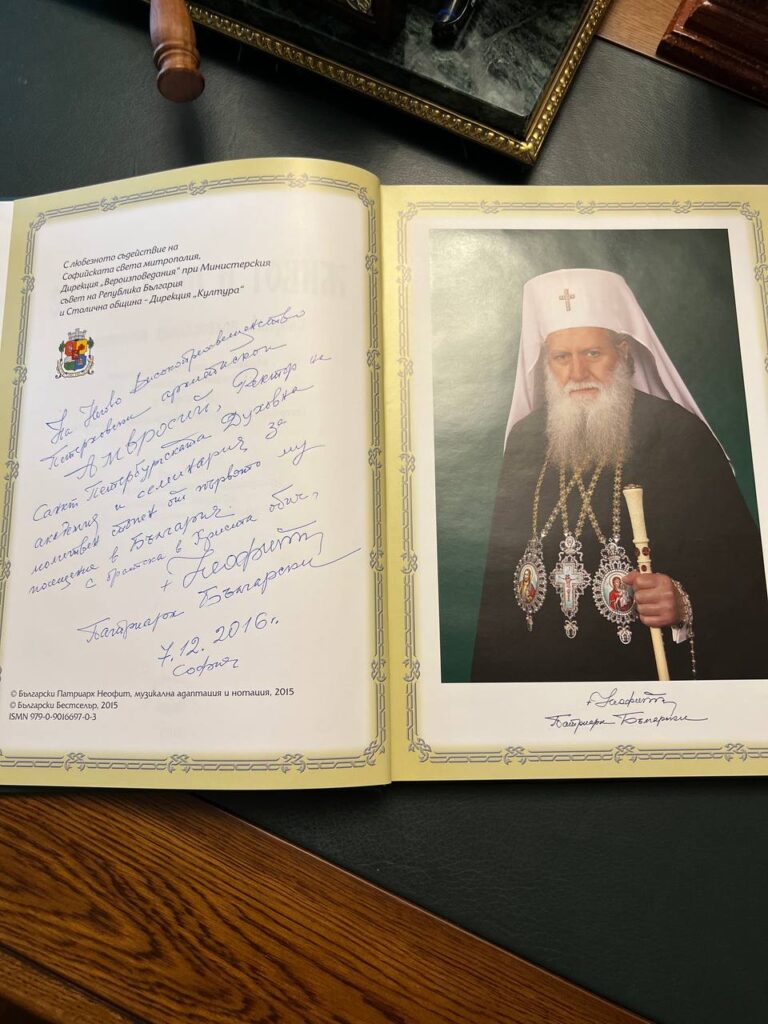 С любезното съдействие на
Софийската света митрополия,
Дирекция „Вероизповедания“ при Министерския
съвет на Република България
и Столична община - Дирекция „Култура“
На Негово Високопреосвещенство
Петерховски архиепископ
Амвросий, Ректор на
Санкт Петербургската Духовна
академия и семинария, за
молитвен спомен от първото му
посещение в България.
с братска в Христа обич,
+ Неофит,
Патриарх Български
7.12.2016 г.
София
© Български Патриарх Неофит, музикална адаптация и нотация, 2015
© Български Бестселър, 2015
ISMN 979-0-9016697-0-3
+ Неофит
Патриарх Български